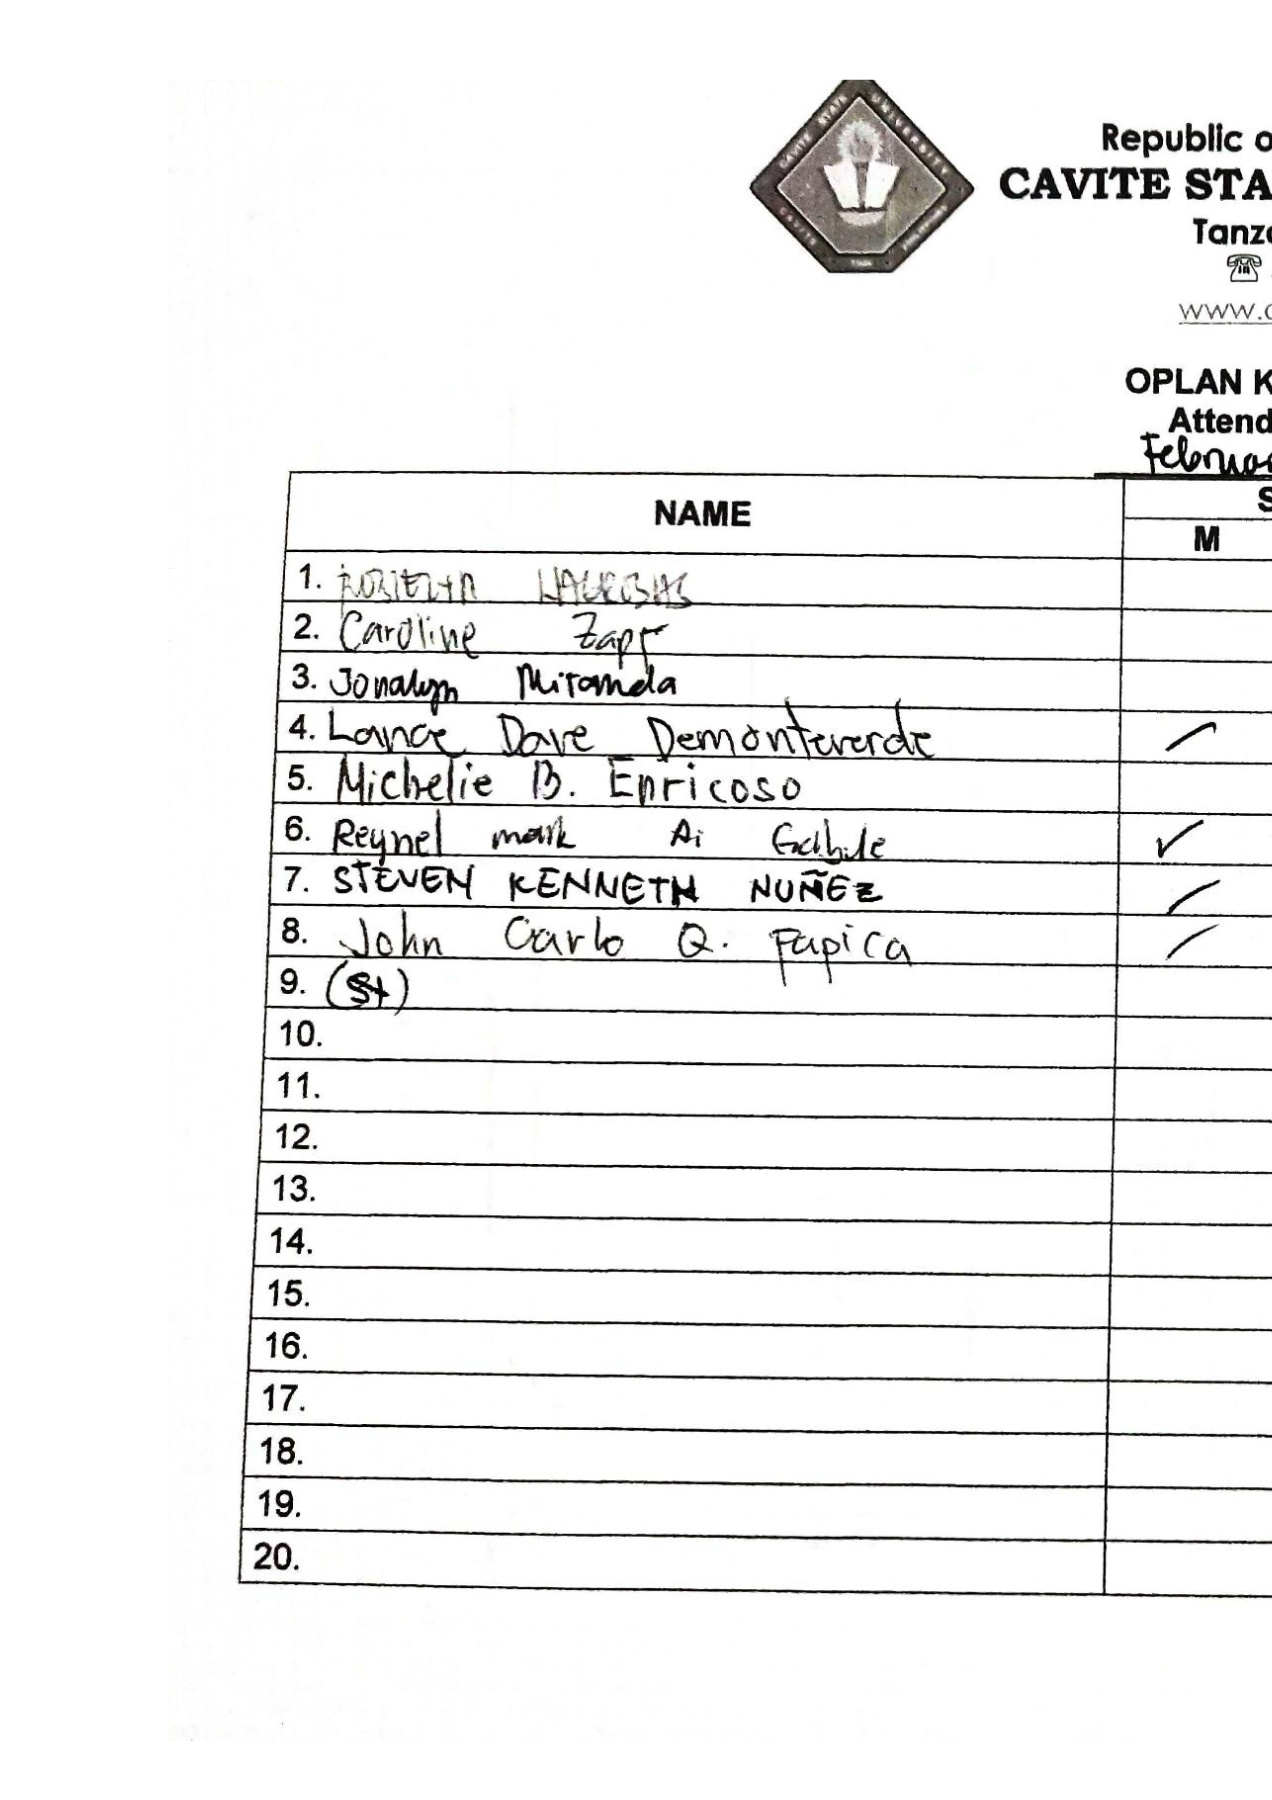 CAVITE STATE UNIVERSITY
CAVITE
Republic o
CAVITE STA
Tanza
www.c
OPLAN K
Attend
Februar
NAME
S
M
1.
2. Caroline
3. Jonalyn Miranda
4. Lance Dave Demonteverde
5. Michelie B. Enricoso
6. Reynel mark
7. STEVEN KENNETH NUÑEZ
8. John Carlo Q. Papica
9.
10.
11.
12.
13.
14.
15.
16.
17.
18.
19.
20.